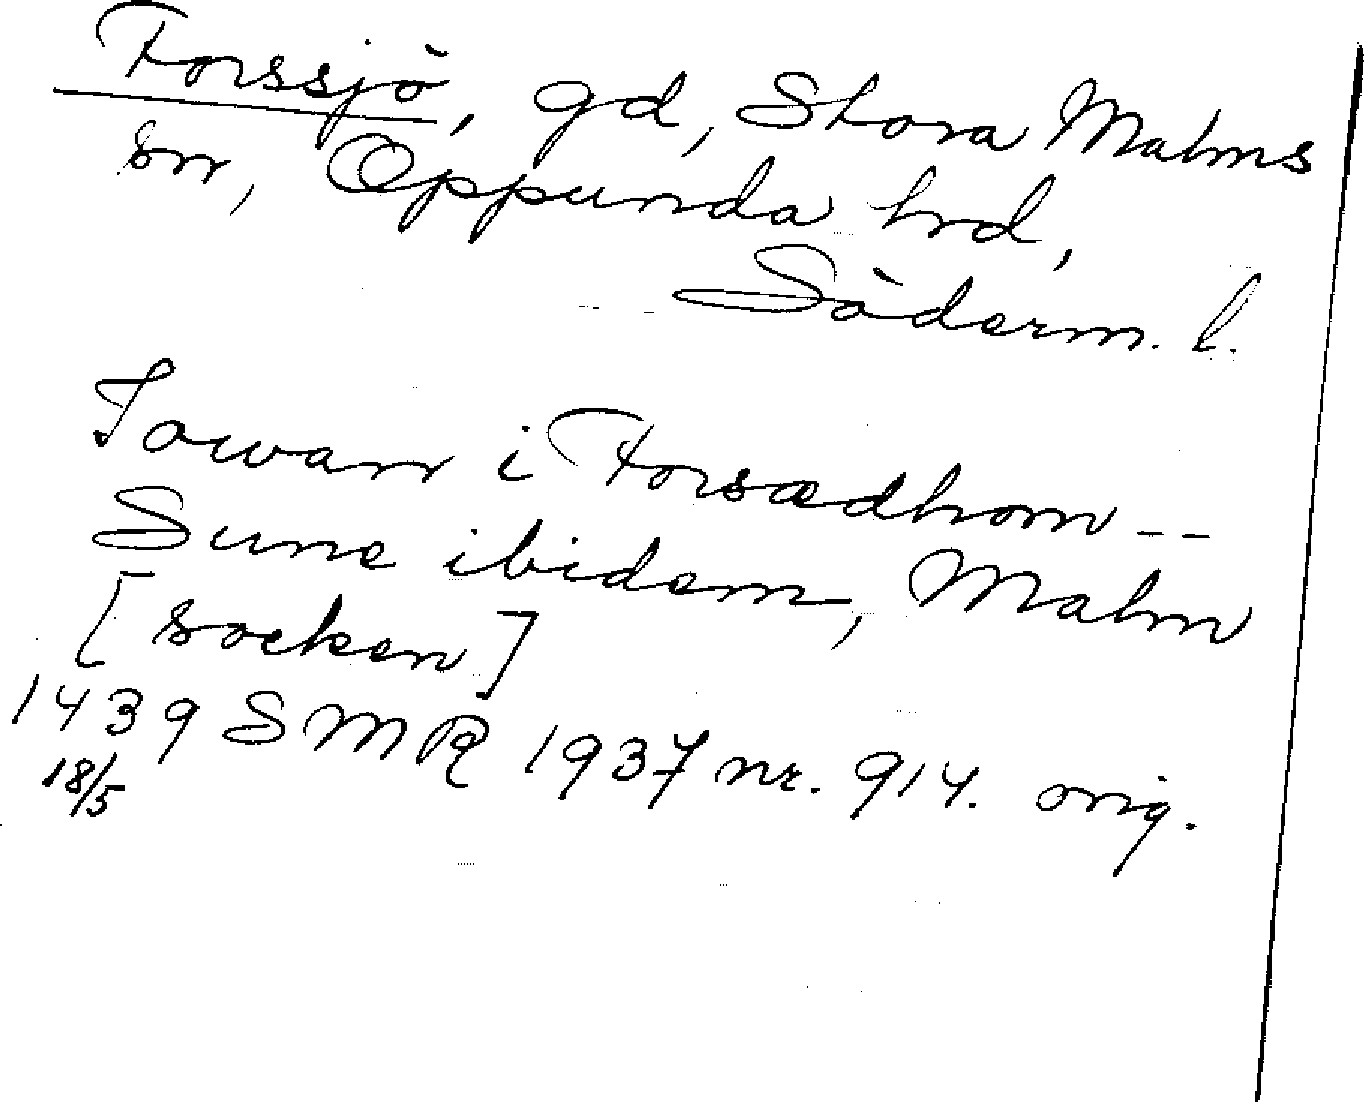 Forssjö, gd, Stora Malms
sn, Oppunda hrd,
Söderm. l.
Jowan i Forsædhom --
Sune ibidem, Malm
[socken]
1439 SMR 1937 nr. 914. orig.
18/5